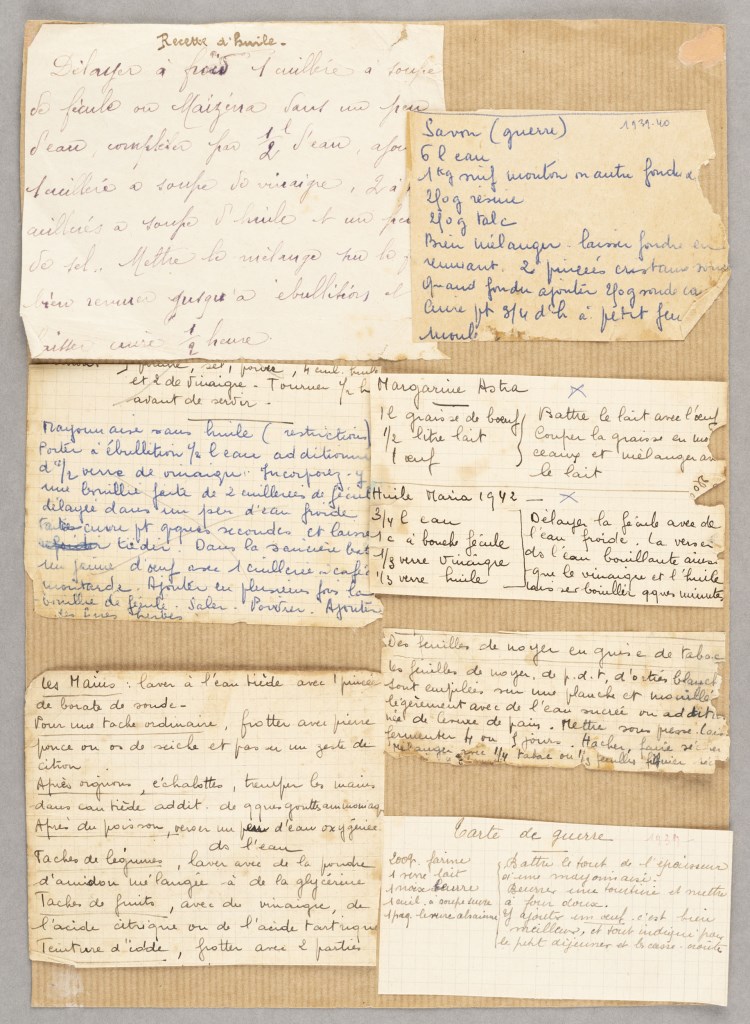 Recette d'huile.
Délayer à froid 1 cuillère à soupe
de fécule ou Maïzena dans un peu
d'eau, compléter par 1/2 l d'eau, ajou
1 cuillère à soupe de vinaigre, 2 à
cuillères à soupe d'huile et un peu
de sel. Mettre le mélange sur le
bien remuer jusqu'à ébullition et
laisser cuire 1/2 heure.
Savon (guerre) 1939-40
6 l eau
1 Kg suif mouton ou autre fondu
250g résine
250g talc
Bien mélanger - laisser fondre en
remuant. 2 pincées cristaux
Quand fondu ajouter 250g soude ca
Cuire pt 3/4 d'h à petit feu
Moule
sel, poivre, 4 cuil.
et 2 de vinaigre - Tourner 1/2 h
avant de servir.
Mayonnaise sans huile (restrictions)
Porter à ébullition 1/2 l eau additionné
d'1/2 verre de vinaigre. Incorporez-y
une bouillie faite de 2 cuillerées de fécule
délayée dans un peu d'eau froide
cuire pt qques secondes et laisse
tiédir. Dans la saucière bat
un jaune d'œuf avec 1 cuillerée à café
moutarde. Ajouter en plusieurs fois la
bouillie de fécule. Saler. Poivrer. Ajouter
des fines herbes.
Margarine Astra X
1 l graisse de bœuf
1/2 litre lait
1 œuf
Battre le lait avec l'œuf
Couper la graisse en mo
ceaux et mélanger av
le lait
Huile Maria 1942 — X
3/4 l eau
1 c à bouche fécule
1/3 verre vinaigre
1/3 verre huile
Délayer la fécule avec de
l'eau froide. La verser
ds l'eau bouillante ainsi
que le vinaigre et l'huile
laisser bouillir qques minutes
Des feuilles de noyer en guise de tabac
Les feuilles de noyer, de p.d.t, d'orties blanch
sont empilées sur une planche et mouillé
légèrement avec de l'eau sucrée ou addit
née de levure de pain. Mettre sous presse. Lais
fermenter 4 ou 5 jours. Hacher, faire séc
Mélanger avec 1/4 tabac ou 1/3 feuilles
Les Mains : laver à l'eau tiède avec 1 pincée
de borate de soude -
Pour une tache ordinaire, frotter avec pierre
ponce ou os de seiche et passer un zeste de
citron.
Après oignons, échalottes, tremper les mains
dans eau tiède addit. de qques gouttes ammoniaq
Après du poisson, verser un peu d'eau oxygénée
ds l'eau
Taches de légumes, laver avec de la poudre
d'amidon mélangée à de la glycérine
Taches de fruits, avec du vinaigre, de
l'acide citrique ou de l'acide tartrique
Teinture d'iode, frotter avec 2 parties
Tarte de guerre
200g. farine
1 verre lait
1 noix beurre
1 cuil. à soupe sucre
1 paq. levure alsacienne
Battre le tout de l'épaisseur
d'une mayonnaise.
Beurrer une tourtière et mettre
à four doux.
Y ajouter un œuf c'est bien
meilleur, et tout indiqué pour
le petit déjeuner et le casse-croûte